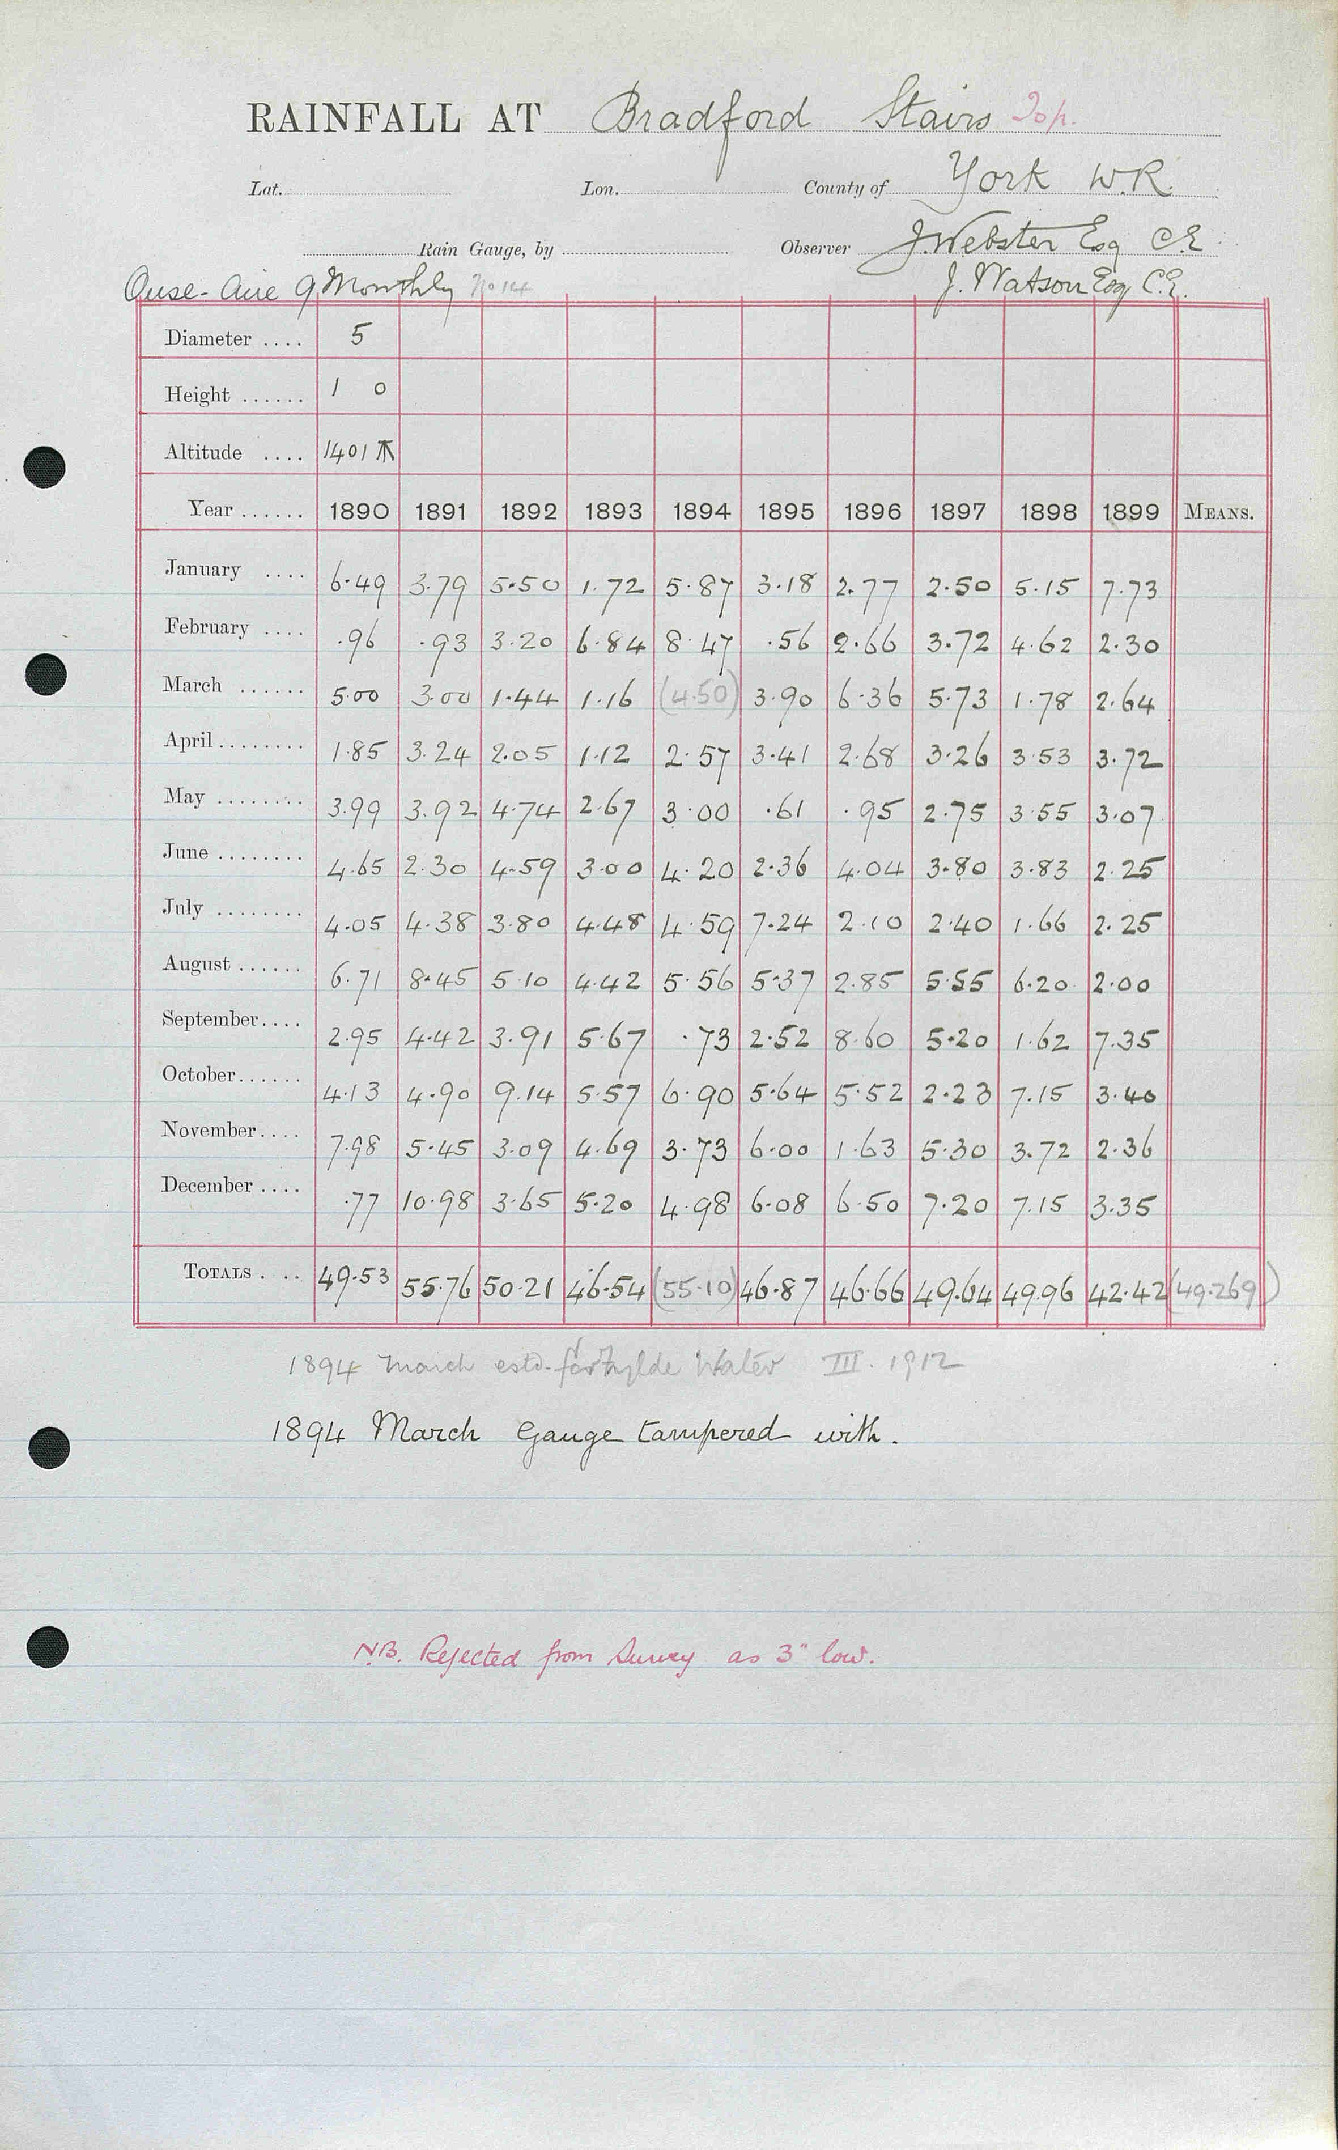 RAINFALL AT Bradford Stairs Top.
Lat. Lon. County of York W.R.
Rain Gauge, by Observer J. Webster Esq C.E
Ouse-Aire 9 Monthly No 14 J. Watson Esq C.E.
Diameter .... 5
Height ...... 1 0
Altitude .... 1401
Year ...... 1890 1891 1892 1893 1894 1895 1896 1897 1898 1899 MEANS.
January .... 6.49 3.79 5.50 1.72 5.87 3.18 2.77 2.50 5.15 7.73
February .... .96 .93 3.20 6.84 8.47 .56 2.66 3.72 4.62 2.30
March ...... 5.00 3.00 1.44 1.16 (4.50) 3.90 6.36 5.73 1.78 2.64
April ........ 1.85 3.24 2.05 1.12 2.57 3.41 2.68 3.26 3.53 3.72
May ........ 3.99 3.92 4.74 2.67 3.00 .61 .95 2.75 3.55 3.07
June ........ 4.65 2.30 4.59 3.00 4.20 2.36 4.04 3.80 3.83 2.25
July ........ 4.05 4.38 3.80 4.48 4.59 7.24 2.10 2.40 1.66 2.25
August ...... 6.71 8.45 5.10 4.42 5.56 5.37 2.85 5.55 6.20 2.00
September.... 2.95 4.42 3.91 5.67 .73 2.52 8.60 5.20 1.62 7.35
October...... 4.13 4.90 9.14 5.57 6.90 5.64 5.52 2.23 7.15 3.40
November.... 7.98 5.45 3.09 4.69 3.73 6.00 1.63 5.30 3.72 2.36
December .... .77 10.98 3.65 5.20 4.98 6.08 6.50 7.20 7.15 3.35
TOTALS .... 49.53 55.76 50.21 46.54 (55.10) 46.87 46.66 49.64 49.96 42.42 (49.269)
1894 March estd. for Fylde Water III. 1912
1894 March Gauge tampered with.
N.B. Rejected from Survey as 3" low.